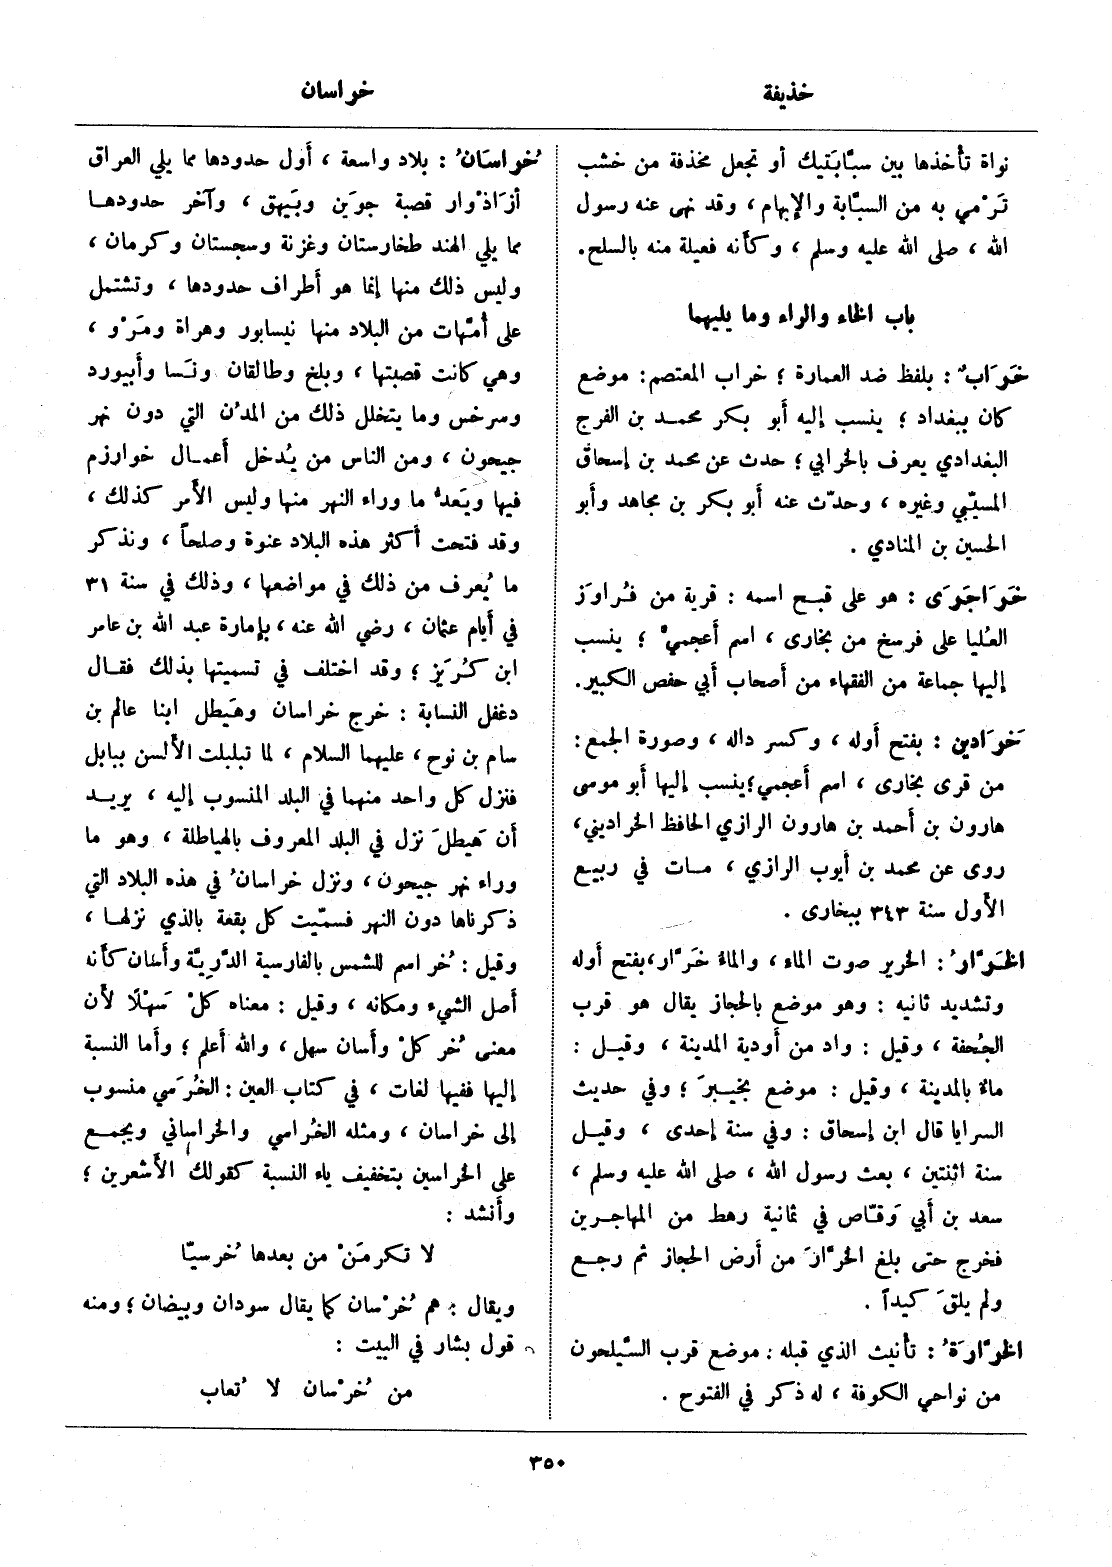 خذيفة
خراسان
نواة تأخذها بين سبّابتيك أو تجعل مخذفة من خشب
تَرْمي به من السبّابة والإبهام ، وقد نهى عنه رسول
الله ، صلى الله عليه وسلم ، وكأنه فعيلة منه بالسلح.
باب الخاء والراء وما يليهما
خَرَابٌ : بلفظ ضد العمارة ؛ خراب المعتصم: موضع
كان ببغداد ؛ ينسب إليه أبو بكر محمد بن الفرج
البغدادي يعرف بالخرابي ؛ حدث عن محمد بن إسحاق
المسيّبي وغيره ، وحدّث عنه أبو بكر بن مجاهد وأبو
الحسين بن المنادي .
خَرَاجَرَى : هو على قبح اسمه : قرية من فُراوَز
العُليا على فرسخ من بخارى ، اسم أعجميّ ؛ ينسب
إليها جماعة من الفقهاء من أصحاب أبي حفص الكبير.
خَرَادين : بفتح أوله ، وكسر داله ، وصورة الجمع :
من قرى بخارى ، اسم أعجمي ؛ ينسب إليها أبو موسى
هارون بن أحمد بن هارون الرازي الحافظ الخراديني ،
روى عن محمد بن أيوب الرازي ، مات في ربيع
الأول سنة ٣٤٣ ببخارى .
الخَرّارُ : الخرير صوت الماء ، والماءُ خَرّار ، بفتح أوله
وتشديد ثانيه : وهو موضع بالحجاز يقال هو قرب
الجُحفة ، وقيل : واد من أودية المدينة ، وقيل :
ماءٌ بالمدينة ، وقيل : موضع بخيبرَ ؛ وفي حديث
السرايا قال ابن إسحاق : وفي سنة إحدى ، وقيل
سنة اثنتين ، بعث رسول الله ، صلى الله عليه وسلم ،
سعد بن أبي وَقّاص في ثمانية رهط من المهاجرين
فخرج حتى بلغ الخرّارَ من أرض الحجاز ثم رجع
ولم يلقَ كيداً .
الخرّارَةُ : تأنيث الذي قبله : موضع قرب السَّيلحون
من نواحي الكوفة ، له ذكر في الفتوح .
خُراسَانُ : بلاد واسعة ، أول حدودها مما يلي العراق
أزَاذْوار قصبة جوَين وبَيهق ، وآخر حدودها
مما يلي الهند طخارستان وغزنة وسجستان وكرمان ،
وليس ذلك منها إنما هو أطراف حدودها ، وتشتمل
على أُمّهات من البلاد منها نيسابور وهراة ومَرْو ،
وهي كانت قصبتها ، وبلخ وطالقان ونَسا وأبيورد
وسرخس وما يتخلل ذلك من المدُن التي دون نهر
جيحون ، ومن الناس من يُدخل أعمال خوارزم
فيها ويَعدّ ما وراء النهر منها وليس الأمر كذلك ،
وقد فتحت أكثر هذه البلاد عنوة وصلحاً ، ونذكر
ما يُعرف من ذلك في مواضعها ، وذلك في سنة ٣١
في أيام عثمان ، رضي الله عنه ، بإمارة عبد الله بن عامر
ابن كُرَيْز ؛ وقد اختلف في تسميتها بذلك فقال
دغفل النسابة : خرج خراسان وهَيطل ابنا عالم بن
سام بن نوح ، عليهما السلام ، لما تبلبلت الألسن ببابل
فنزل كل واحد منهما في البلد المنسوب إليه ، يريد
أن هَيطلَ نزل في البلد المعروف بالهياطلة ، وهو ما
وراء نهر جيحون ، ونزل خراسانُ في هذه البلاد التي
ذكرناها دون النهر فسمّيت كل بقعة بالذي نزلها ،
وقيل : خُر اسم للشمس بالفارسية الدَّرِيّة وأسان كأنه
أصل الشيء ومكانه ، وقيل : معناه كلْ سَهْلًا لأن
معنى خُر كلْ وأسان سهل ، والله أعلم ؛ وأما النسبة
إليها ففيها لغات ، في كتاب العين : الخُرَسي منسوب
إلى خراسان ، ومثله الخُراسي والخراساني ويجمع
على الخراسين بتخفيف ياء النسبة كقولك الأشعرين ؛
وأنشد :
لا تكرمَنْ من بعدها خُرسيّا
ويقال : هم خُرْسان كما يقال سودان وبيضان ؛ ومنه
قول بشار في البيت :
من خُرْسان لا تُعاب
٣٥٠